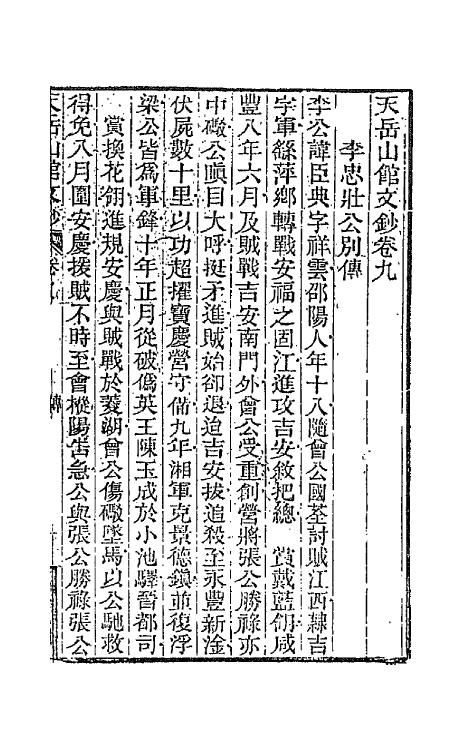 天岳山館文鈔卷九
李忠壯公別傳
李公諱臣典字祥雲邵陽人年十八隨曾公國荃討賊江西隸吉
字軍繇萍鄉轉戰安福之固江進攻吉安敘把總 賞戴藍翎咸
豐八年六月及賊戰吉安南門外曾公受重創營將張公勝祿亦
中礮公瞋目大呼挺矛進賊始卻退迨吉安拔追殺至永豐新淦
伏屍數十里以功超擢寶慶營守備九年湘軍克景德鎮並復浮
梁公皆爲軍鋒十年正月從破僞英王陳玉成於小池驛晉都司
賞換花翎進規安慶與賊戰於菱湖曾公傷礮墜馬以公馳救
得免八月圍安慶援賊不時至會樅陽告急公與張公勝祿張公
天岳山館文鈔 卷九 傳